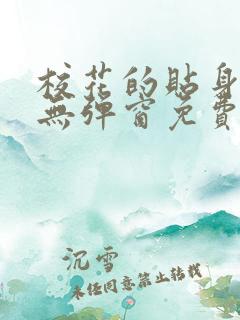 校花的貼身
無彈窗免費
沉雪
未经同意禁止转载